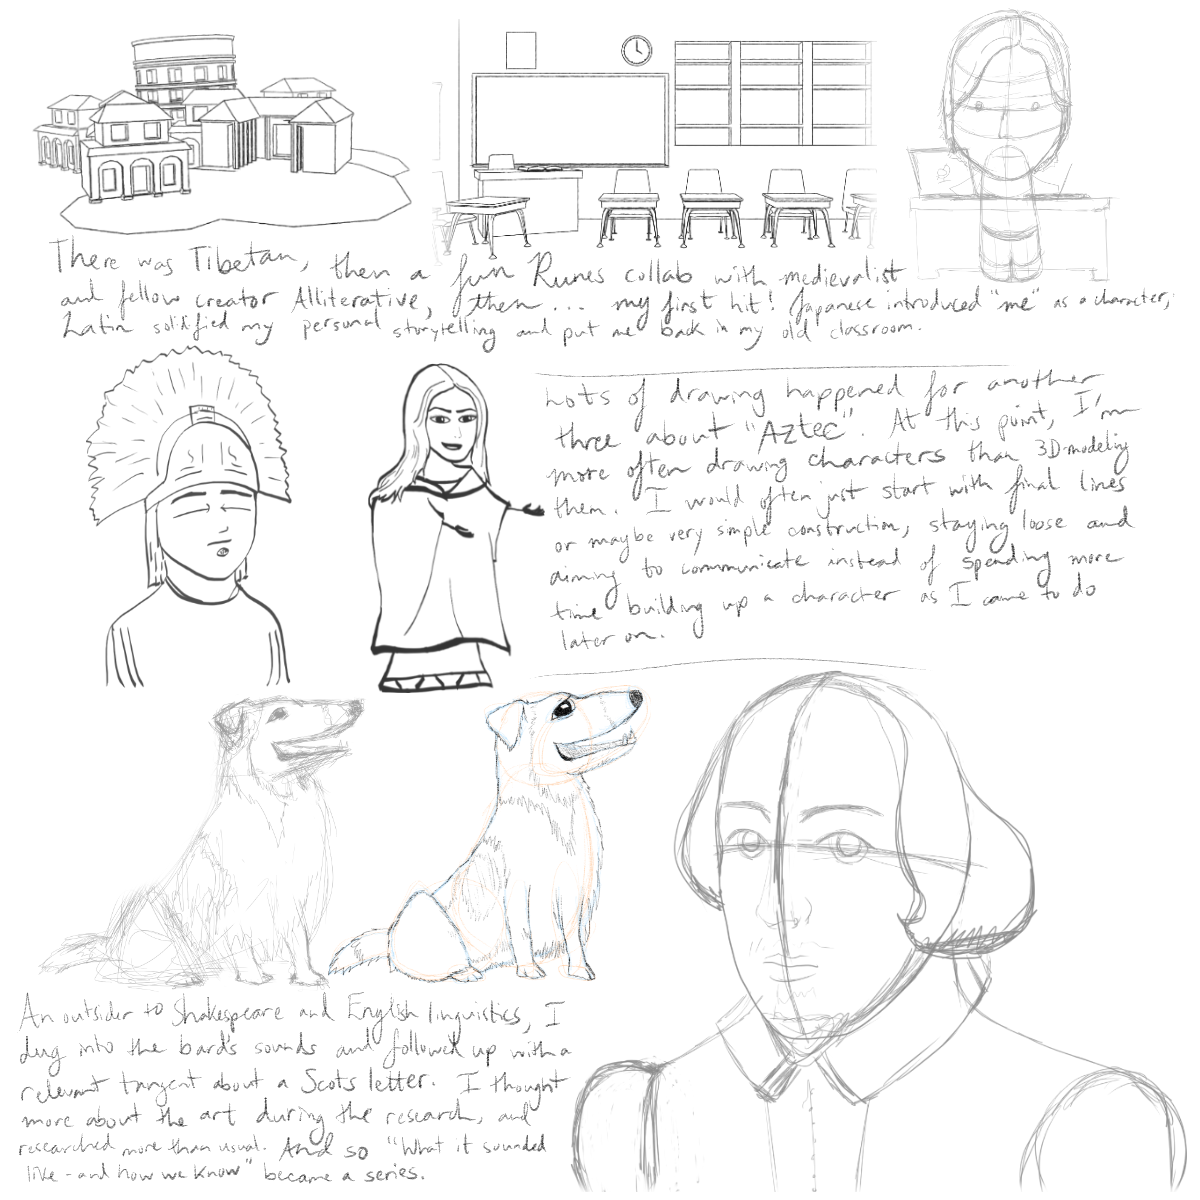 There was Tibetan, then a fun Runes collab with medievalist
and fellow creator Alliterative, then... my first hit! Japanese introduced "me" as a character;
Latin solidified my personal storytelling and put me back in my old classroom.
Lots of drawing happened for another
three about "Aztec". At this point, I'm
more often drawing characters than 3D-modeling
them. I would often just start with final lines
or maybe very simple construction, staying loose and
aiming to communicate instead of spending more
time building up a character as I came to do
later on.
An outsider to Shakespeare and English linguistics, I
dug into the bard's sounds and followed up with a
relevant tangent about a Scots letter. I thought
more about the art during the research, and
researched more than usual. And so "What it sounded
like - and how we know" became a series.